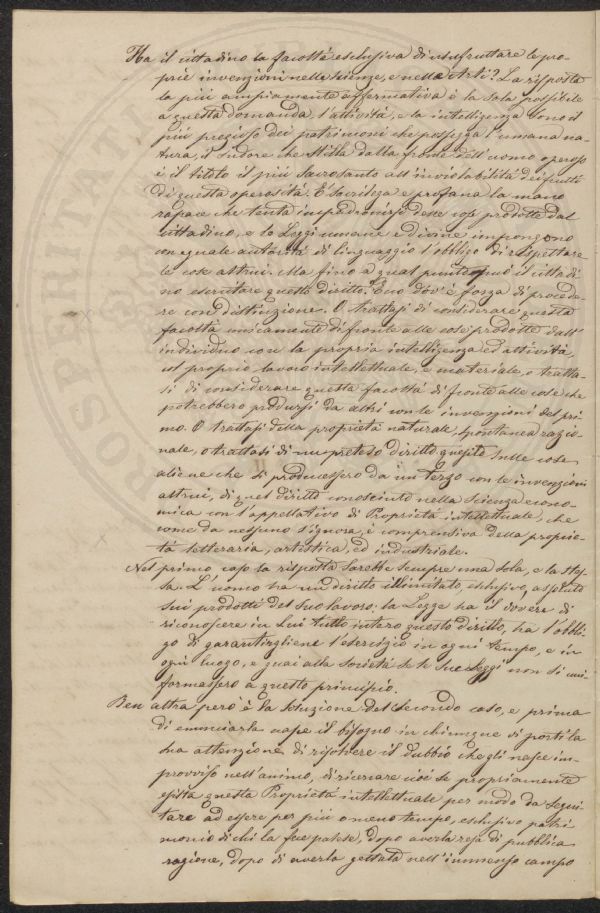 Ha il cittadino la facoltà esclusiva di usufruttare le pro-
prie invenzioni nelle scienze, e nelle Arti? La risposta
la più ampiamente affermativa è la sola possibile
a questa domanda, l'attività, e la intelligenza sono il
più prezioso dei patrimoni che possegga l'umana na-
tura, il sudore che stilla dalla fronte dell'uomo operoso
è il titolo il più sacrosanto all'inviolabilità dei frutti
di questa operosità. È sacrilega e profana la mano
rapace che tenta impadronirsi delle cose prodotte dal
cittadino, e le Leggi umane e divine impongono
con eguale autorità di linguaggio l'obbligo di rispettare
le cose altrui. Ma fino a qual punto può il cittadi
no esercitare questo diritto? Ecco dov'è forza di procede-
re con distinzione. O trattasi di considerare questa
facoltà unicamente di fronte alle cose prodotte dall'
individuo con la propria intelligenza ed attività,
col proprio lavoro intellettuale, e materiale, o tratta-
si di considerare questa facoltà di fronte alle cose che
potrebbero prodursi da altri con le invenzioni del pri
mo. O trattasi della proprietà naturale, spontanea razio-
nale, o trattasi di un preteso diritto quesito sulle cose
aliene che si producessero da un terzo con le invenzioni
altrui, di quel diritto conosciuto nella scienza econo-
mica con l'appellativo di Proprietà intellettuale, che
come da nessuno s'ignora, è comprensiva della proprie-
tà letteraria, artistica, ed industriale.
Nel primo caso la risposta sarebbe sempre una sola, e la stes-
sa. L'uomo ha un diritto illimitato, esclusivo, assoluto
sui prodotti del suo lavoro: la Legge ha il dovere di
riconoscere in lui tutto intero questo diritto, ha l'obbli-
go di garantirgliene l'esercizio in ogni tempo, e in
ogni luogo, e guai alla società se le sue Leggi non si uni
formassero a questo principio.
Ben altra però è la soluzione del secondo caso, e prima
di enunciarla nasce il bisogno in chiunque di porti la
sua attenzione di risolvere il dubbio che gli nasce im-
provviso nell'animo, di ricercare cioè se propriamente
esista questa Proprietà intellettuale per modo da segui
tare ad essere per più o meno tempo, esclusivo patri
monio di chi la fece palese, dopo averla resa di pubblica
ragione, dopo di averla gettata nell'immenso campo